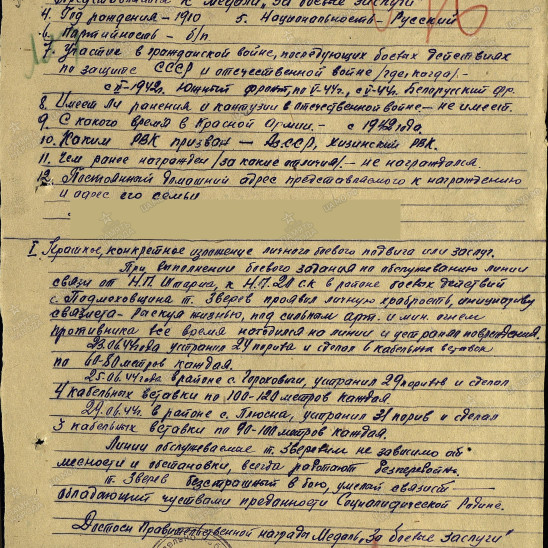 Представляется к Медали "За боевые заслуги"
4. Год рождения - 1910 5. Национальность - Русский
6. Партийность - б/п
7. Участие в гражданской войне, последующих боевых действиях
по защите СССР и отечественной войне /где, когда/ -
1942г. Южный фронт, по 44г., с 44г. Белорусский фр.
8. Имеет ли ранения и контузии в отечественной войне - не имеет.
9. С какого время в Красной Армии. - с 1942 года.
10. Каким РВК призван - Аз.ССР, Хизинский РВК.
11. Чем ранее награжден /за какие отличия/. - не награждался.
12. Постоянный домашний адрес представляемого к награждению
и адрес его семьи
I. Краткое, конкретное изложение личного боевого подвига или заслуг.
При выполнении боевого задания по обслуживанию линии
связи от Н.П. к Н.П. 20 с.к в районе боевых действий
с. Подмоховщина т. Зверев проявил личную храбрость, инициативу
связиста - рискуя жизнью, под сильным арт. и мин. огнем
противника все время находился на линии и устранял повреждения.
23.06.44 года устранил 24 порива и сделал 6 кабельных вставок
по 60-80 метров каждая.
25.06.44 года в районе с. Гороховки, устранил 29 поривов и сделал
4 кабельных вставки по 100-120 метров каждая.
29.06.44г. в районе с. Плюсна, устранил 31 порив и сделал
3 кабельных вставки по 90-100 метров каждая.
Линии обслуживаемые т. Зверевим не зависимо от
месности и обстановки, всегда работают безперебойно.
т. Зверев бесстрашный в бою, умелой связист -
обладающий чуствами преданности Социалистической Родине.
Достоин Правительственной награды Медаль "За боевые заслуги"